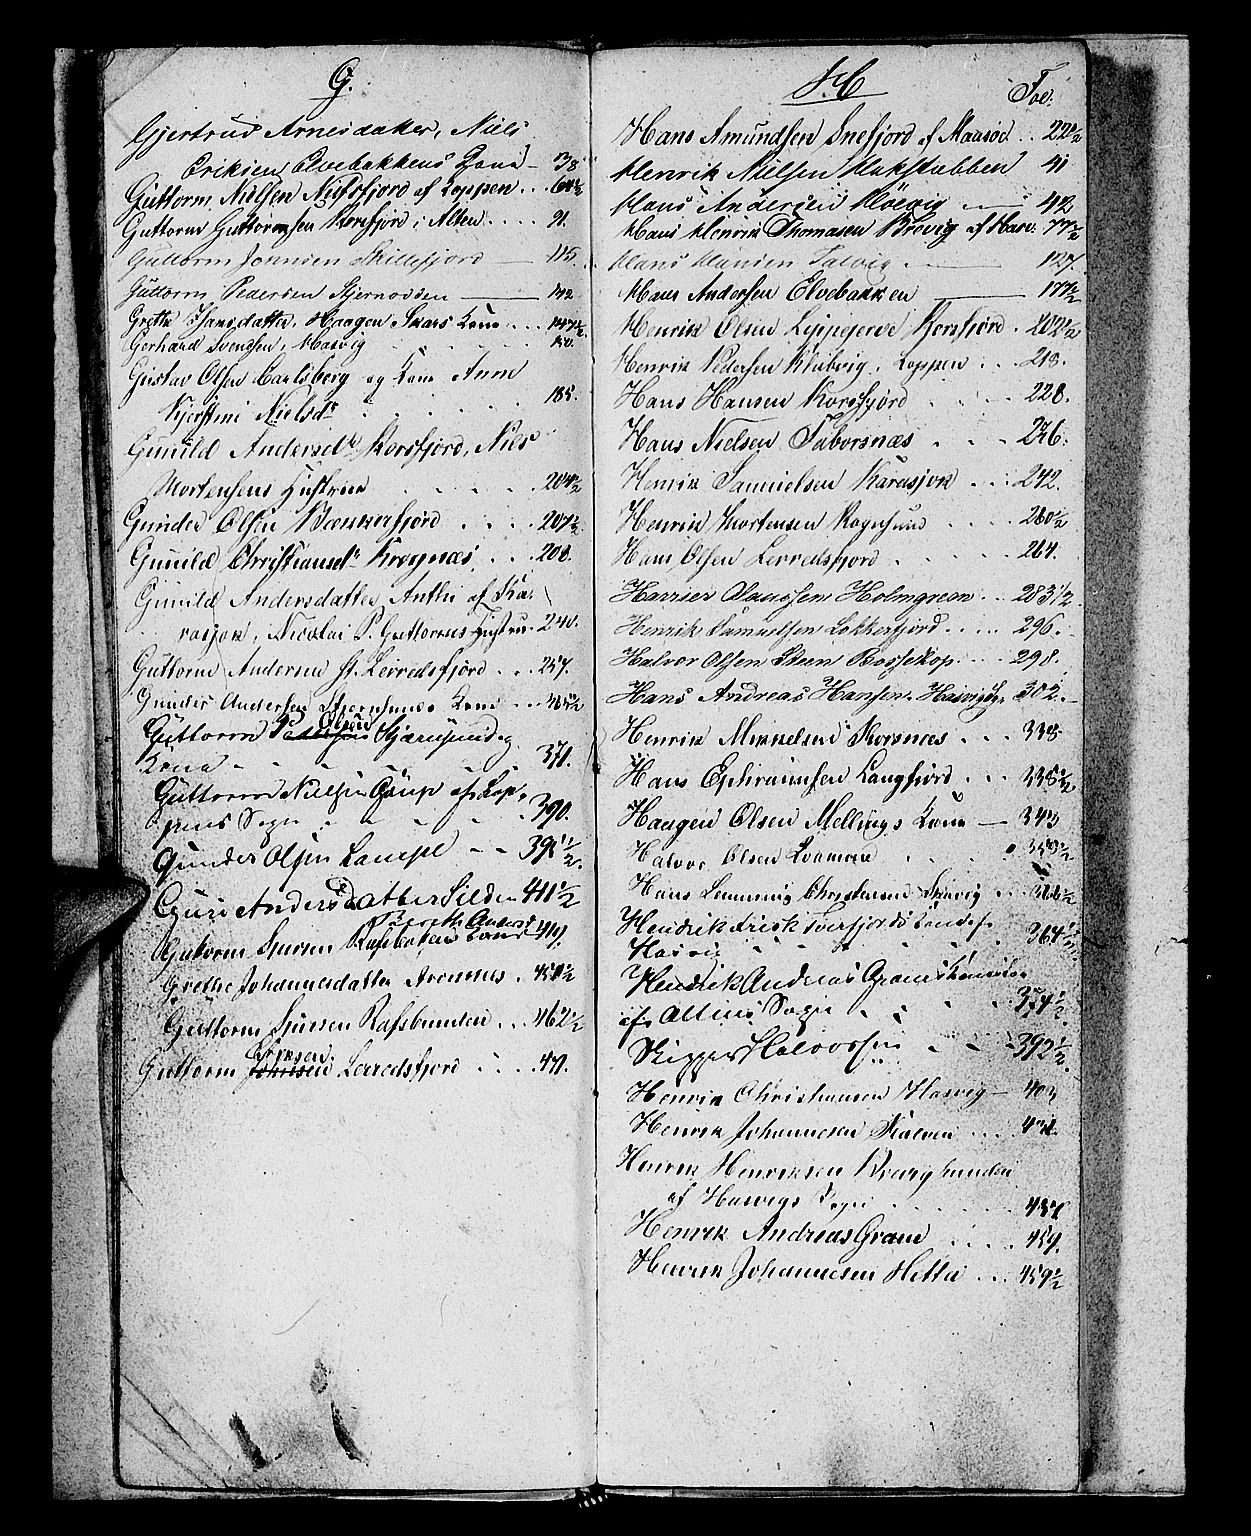 G.
Gjertrud Arnesdatter, Niels
Eriksen Elvebakkens Kone – 38
Guttorm Nielsen Nufsfjord af Loppen . . 64½
Guttorm Guttormsen Korsfjord i Alten . . . . 91.
Guttorm Jonnsen Skillefjord — 115.
Guttorm Pedersen Stjernovsen — 142
Grethe Hansdatter, Haagen Skars Kone . . . 147½
Gerhard Svendsen, Hasvig
Gustav Olsen Carlsberg og Kone Anne
Kjerstine Nielsdr . . . . . 185.
Gunild Andersdr Korsfjord, Niels
Mortensens Hustrue . . . . . 204½
Gunder Olsen Bænkerfjord . . . . 207½
Gunild Christiansdr Krognæs . . . 208.
Gunild Andersdatter Anthi af Ka-
rasjok, Nicolai P. Guttorms Hustru . 240.
Guttorm Andersen st. Lerredsfjord . . . 257.
Gunder Andersen Stjernsunds Kone . . . 365½
Olsen
Guttorm Pedersen Stjernsund og
Kone - - - - - 371.
Guttorm Nielsen Gaup af Lop-
pens Sogn . . . . . 390.
Gunder Olsen Lampe - - 395½
Guri Andersdatter Silden 411½
Berethe Anders
Guttorm Sjursen Rafsbotten Kone 417.
Grethe Johannesdatter Aronnes . 451½
Guttorm Sjursen Rafsbunden . . . 462½
Guttorm Johnsen Lerredsfjord . . . . 471.
H
Fol:
Hans Amundsen Snefjord af Maasøe . . 22½
Henrik Nielsen Hakstabben 41
Hans Andersen Kløevig — 42,
Hans Henrik Thomasen Brevig af Hasv: 77½
Hans Hansen Talvig . — 127.
Hans Andersen Elvebakken — 177½
Henrik Olsen Leppegerde Korsfjord . 202½
Henrik Pedersen Klubvig, Loppen . . . 218.
Hans Hansen Korsfjord . . . 228.
Hans Nielsen Tabornæs . . . 236.
Henrik Samuelsen Karasjok . . . 242.
Henrik Mortensen Rognsund . . . . 260½
Hans Olsen Lerredsfjord . . . . 264.
Harrier Claussen Holmgreen . . 283½
Henrik Samuelsen Lokkerfjord . . . . . 296.
Halvor Olsen Steen Bossekop . . . . 298.
Hans Andreas Hansen Hasvigør 302.
Henrik Mikkelsen Korsnæs . . . 338
Hans Ephraimsen Langfjord . . . 335½
Haagen Olsen Mellings Kone — 343
Halvor Olsen . . . . 350½
Hans Lemming Christensen Skavig . .
Hendrik Erisk Tverfjords Kone af
Hasvig . . . . . 364½
Hendrik Andreas Grams
af Altens Sogn . . . . . 374½.
Skipper Halvorsen . - - 392½
Henrik Christiansen Hasvig — 403
Henrik Johannesen Kalven . . . 431.
Henrik Henriksen Kvarghunden
af Hasvigs Sogn . . . . . 437
Henrik Andreas Gram . . . . 457.
Henrik Johannesen Hetta . . . 459½